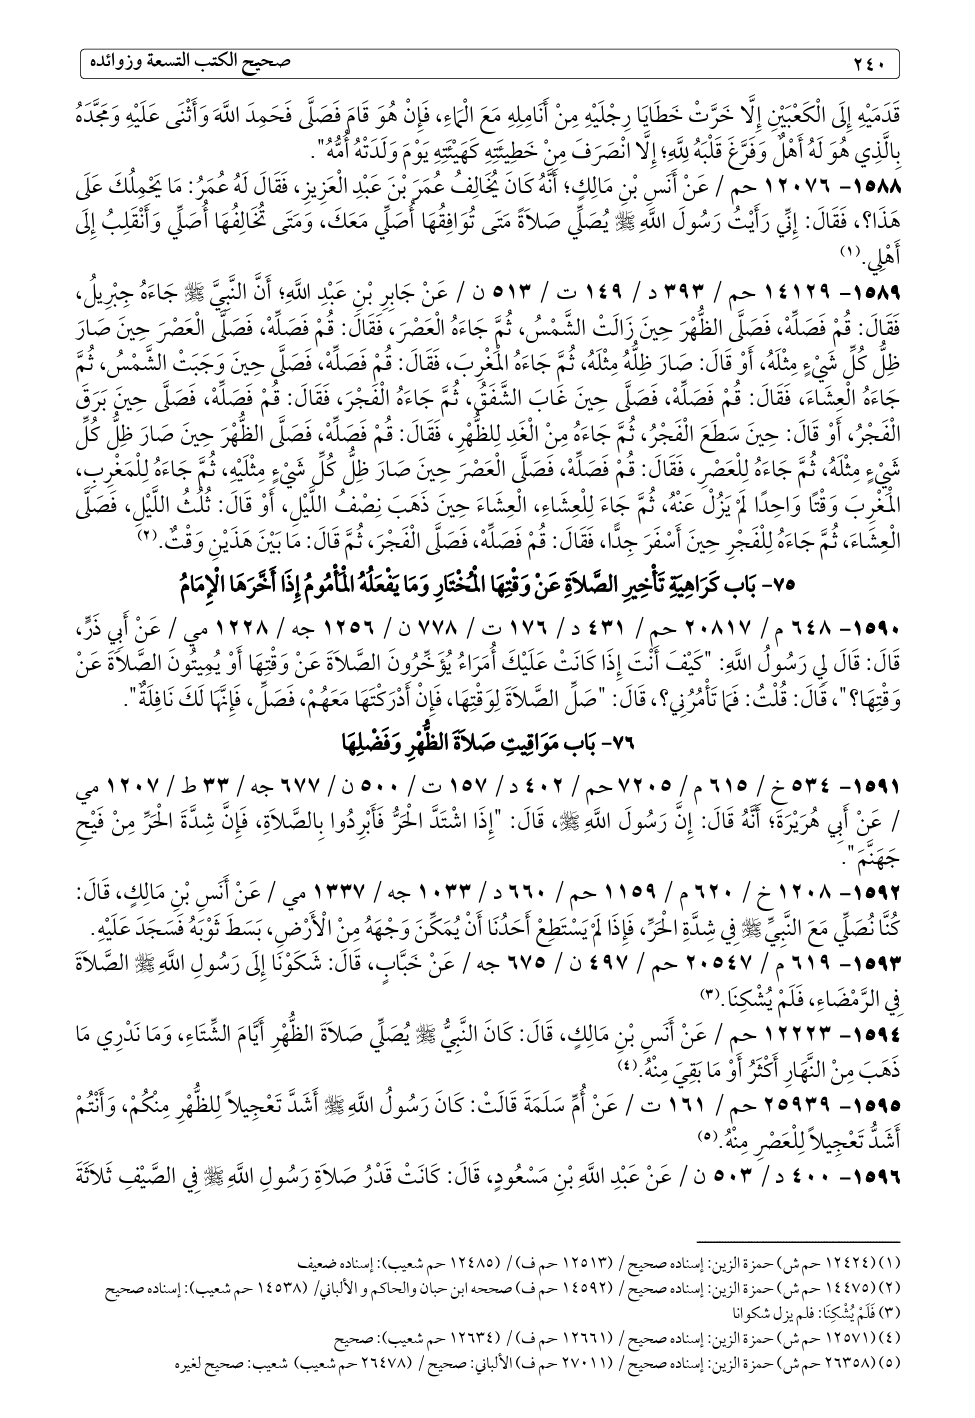 ٢٤٠ صحيح الكتب التسعة وزوائده
قَدَمَيْهِ إِلَى الْكَعْبَيْنِ إِلَّا خَرَّتْ خَطَايَا رِجْلَيْهِ مِنْ أَنَامِلِهِ مَعَ الْمَاءِ، فَإِنْ هُوَ قَامَ فَصَلَّى فَحَمِدَ اللَّهَ وَأَثْنَى عَلَيْهِ وَمَجَّدَهُ
بِالَّذِي هُوَ لَهُ أَهْلٌ وَفَرَّغَ قَلْبَهُ لِلَّهِ؛ إِلَّا انْصَرَفَ مِنْ خَطِيئَتِهِ كَهَيْئَتِهِ يَوْمَ وَلَدَتْهُ أُمُّهُ".
١٥٨٨- ١٢٠٧٦ حم / عَنْ أَنَسِ بْنِ مَالِكٍ؛ أَنَّهُ كَانَ يُخَالِفُ عُمَرَ بْنَ عَبْدِ الْعَزِيزِ، فَقَالَ لَهُ عُمَرُ: مَا يَحْمِلُكَ عَلَى
هَذَا؟، فَقَالَ: إِنِّي رَأَيْتُ رَسُولَ اللَّهِ ﷺ يُصَلِّي صَلاَةً مَتَى تُوَافِقُهَا أُصَلِّي مَعَكَ، وَمَتَى تُخَالِفُهَا أُصَلِّي وَأَنْقَلِبُ إِلَى
أَهْلِي.(١)
١٥٨٩- ١٤١٢٩ حم / ٣٩٣ د/ ١٤٩ ت / ٥١٣ ن / عَنْ جَابِرِ بْنِ عَبْدِ اللَّهِ؛ أَنَّ النَّبِيَّ ﷺ جَاءَهُ جِبْرِيلُ،
فَقَالَ: قُمْ فَصَلِّهْ، فَصَلَّى الظُّهْرَ حِينَ زَالَتْ الشَّمْسُ، ثُمَّ جَاءَهُ الْعَصْرَ، فَقَالَ: قُمْ فَصَلِّهْ، فَصَلَّى الْعَصْرَ حِينَ صَارَ
ظِلُّ كُلِّ شَيْءٍ مِثْلَهُ، أَوْ قَالَ: صَارَ ظِلُّهُ مِثْلَهُ، ثُمَّ جَاءَهُ الْمَغْرِبَ، فَقَالَ: قُمْ فَصَلِّهْ، فَصَلَّى حِينَ وَجَبَتْ الشَّمْسُ، ثُمَّ
جَاءَهُ الْعِشَاءَ، فَقَالَ: قُمْ فَصَلِّهْ، فَصَلَّى حِينَ غَابَ الشَّفَقُ، ثُمَّ جَاءَهُ الْفَجْرَ، فَقَالَ: قُمْ فَصَلِّهْ، فَصَلَّى حِينَ بَرَقَ
الْفَجْرُ، أَوْ قَالَ: حِينَ سَطَعَ الْفَجْرُ، ثُمَّ جَاءَهُ مِنْ الْغَدِ لِلظُّهْرِ، فَقَالَ: قُمْ فَصَلِّهْ، فَصَلَّى الظُّهْرَ حِينَ صَارَ ظِلُّ كُلِّ
شَيْءٍ مِثْلَهُ، ثُمَّ جَاءَهُ لِلْعَصْرِ، فَقَالَ: قُمْ فَصَلِّهْ، فَصَلَّى الْعَصْرَ حِينَ صَارَ ظِلُّ كُلِّ شَيْءٍ مِثْلَيْهِ، ثُمَّ جَاءَهُ لِلْمَغْرِبِ،
الْمَغْرِبَ وَقْتًا وَاحِدًا لَمْ يَزُلْ عَنْهُ، ثُمَّ جَاءَ لِلْعِشَاءِ، الْعِشَاءَ حِينَ ذَهَبَ نِصْفُ اللَّيْلِ، أَوْ قَالَ: ثُلُثُ اللَّيْلِ، فَصَلَّى
الْعِشَاءَ، ثُمَّ جَاءَهُ لِلْفَجْرِ حِينَ أَسْفَرَ جِدًّا، فَقَالَ: قُمْ فَصَلِّهْ، فَصَلَّى الْفَجْرَ، ثُمَّ قَالَ: مَا بَيْنَ هَذَيْنِ وَقْتٌ.(٢)
٧٥- بَاب كَرَاهِيَةِ تَأْخِيرِ الصَّلاَةِ عَنْ وَقْتِهَا الْمُخْتَارِ وَمَا يَفْعَلُهُ الْمَأْمُومُ إِذَا أَخَّرَهَا الْإِمَامُ
١٥٩٠- ٦٤٨ م/ ٢٠٨١٧ حم / ٤٣١ د/ ١٧٦ ت / ٧٧٨ ن / ١٢٥٦ جه / ١٢٢٨ مي / عَنْ أَبِي ذَرٍّ،
قَالَ: قَالَ لِي رَسُولُ اللَّهِ: "كَيْفَ أَنْتَ إِذَا كَانَتْ عَلَيْكَ أُمَرَاءُ يُؤَخِّرُونَ الصَّلاَةَ عَنْ وَقْتِهَا أَوْ يُمِيتُونَ الصَّلاَةَ عَنْ
وَقْتِهَا؟"، قَالَ: قُلْتُ: فَمَا تَأْمُرُنِي؟، قَالَ: "صَلِّ الصَّلاَةَ لِوَقْتِهَا، فَإِنْ أَدْرَكْتَهَا مَعَهُمْ، فَصَلِّ، فَإِنَّهَا لَكَ نَافِلَةٌ".
٧٦- بَاب مَوَاقِيتِ صَلاَةَ الظُّهْرِ وَفَضْلِهَا
١٥٩١- ٥٣٤ خ / ٦١٥ م/ ٧٢٠٥ حم / ٤٠٢ د/ ١٥٧ ت / ٥٠٠ ن/ ٦٧٧ جه / ٣٣ ط / ١٢٠٧ مي
/ عَنْ أَبِي هُرَيْرَةَ؛ أَنَّهُ قَالَ: إِنَّ رَسُولَ اللَّهِ ﷺ، قَالَ: "إِذَا اشْتَدَّ الْحَرُّ فَأَبْرِدُوا بِالصَّلاَةِ، فَإِنَّ شِدَّةَ الْحَرِّ مِنْ فَيْحِ
جَهَنَّمَ".
١٥٩٢- ١٢٠٨ خ / ٦٢٠ م/ ١١٥٩ حم / ٦٦٠ د/ ١٠٣٣ جه / ١٣٣٧ مي / عَنْ أَنَسِ بْنِ مَالِكٍ، قَالَ:
كُنَّا نُصَلِّي مَعَ النَّبِيِّ ﷺ فِي شِدَّةِ الْحَرِّ، فَإِذَا لَمْ يَسْتَطِعْ أَحَدُنَا أَنْ يُمَكِّنَ وَجْهَهُ مِنْ الْأَرْضِ، بَسَطَ ثَوْبَهُ فَسَجَدَ عَلَيْهِ.
١٥٩٣- ٦١٩ م/ ٢٠٥٤٧ حم / ٤٩٧ ن / ٦٧٥ جه / عَنْ خَبَّابٍ، قَالَ: شَكَوْنَا إِلَى رَسُولِ اللَّهِ ﷺ الصَّلاَةَ
فِي الرَّمْضَاءِ، فَلَمْ يُشْكِنَا.(٣)
١٥٩٤- ١٢٢٢٣ حم / عَنْ أَنَسِ بْنِ مَالِكٍ، قَالَ: كَانَ النَّبِيُّ ﷺ يُصَلِّي صَلاَةَ الظُّهْرِ أَيَّامَ الشِّتَاءِ، وَمَا نَدْرِي مَا
ذَهَبَ مِنْ النَّهَارِ أَكْثَرُ أَوْ مَا بَقِيَ مِنْهُ.(٤)
١٥٩٥- ٢٥٩٣٩ حم / ١٦١ ت / عَنْ أُمِّ سَلَمَةَ قَالَتْ: كَانَ رَسُولُ اللَّهِ ﷺ أَشَدَّ تَعْجِيلاً لِلظُّهْرِ مِنْكُمْ، وَأَنْتُمْ
أَشَدُّ تَعْجِيلاً لِلْعَصْرِ مِنْهُ.(٥)
١٥٩٦- ٤٠٠ د/ ٥٠٣ ن / عَنْ عَبْدِ اللَّهِ بْنِ مَسْعُودٍ، قَالَ: كَانَتْ قَدْرُ صَلاَةِ رَسُولِ اللَّهِ ﷺ فِي الصَّيْفِ ثَلاَثَةَ
(١) (١٢٤٢٤ حم ش) حمزة الزين: إسناده صحيح / (١٢٥١٣ حم ف) / (١٢٤٨٥ حم شعيب): إسناده ضعيف
(٢) (١٤٤٧٥ حم ش) حمزة الزين: إسناده صحيح / (١٤٥٩٢ حم ف) صححه ابن حبان والحاكم و الألباني/ (١٤٥٣٨ حم شعيب): إسناده صحيح
(٣) فَلَمْ يُشْكِنَا: فلم يزل شكوانا
(٤) (١٢٥٧١ حم ش) حمزة الزين: إسناده صحيح / (١٢٦٦١ حم ف)/ (١٢٦٣٤ حم شعيب): صحيح
(٥) (٢٦٣٥٨ حم ش) حمزة الزين: إسناده صحيح / (٢٧٠١١ حم ف) الألباني: صحيح / (٢٦٤٧٨ حم شعيب) شعيب: صحيح لغيره